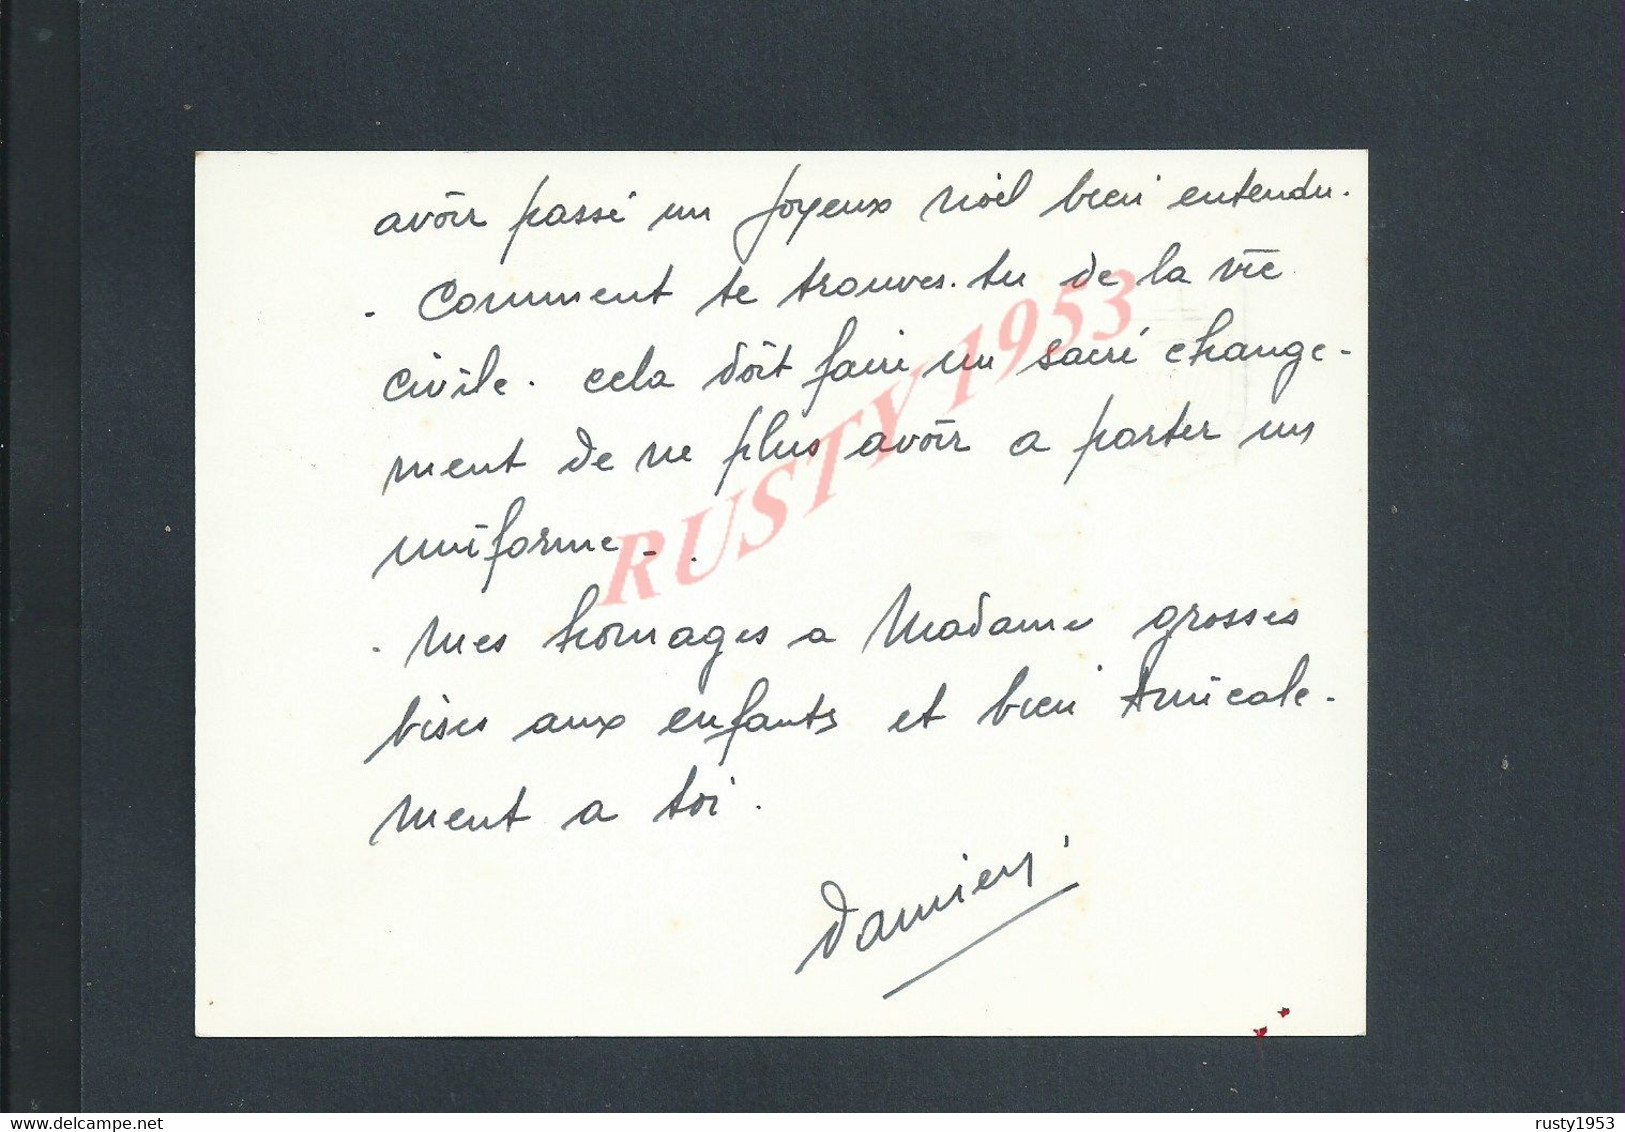 avoir passé un Joyeux Noël bien entendu.
- Comment te trouves-tu de la vie
civile. cela doit faire un sacré change-
ment de ne plus avoir a porter un
uniforme -.
- Mes homages a Madame grosses
bises aux enfants et bien Amicale-
ment a toi.
Damien
RUSTY 1953
rusty1953